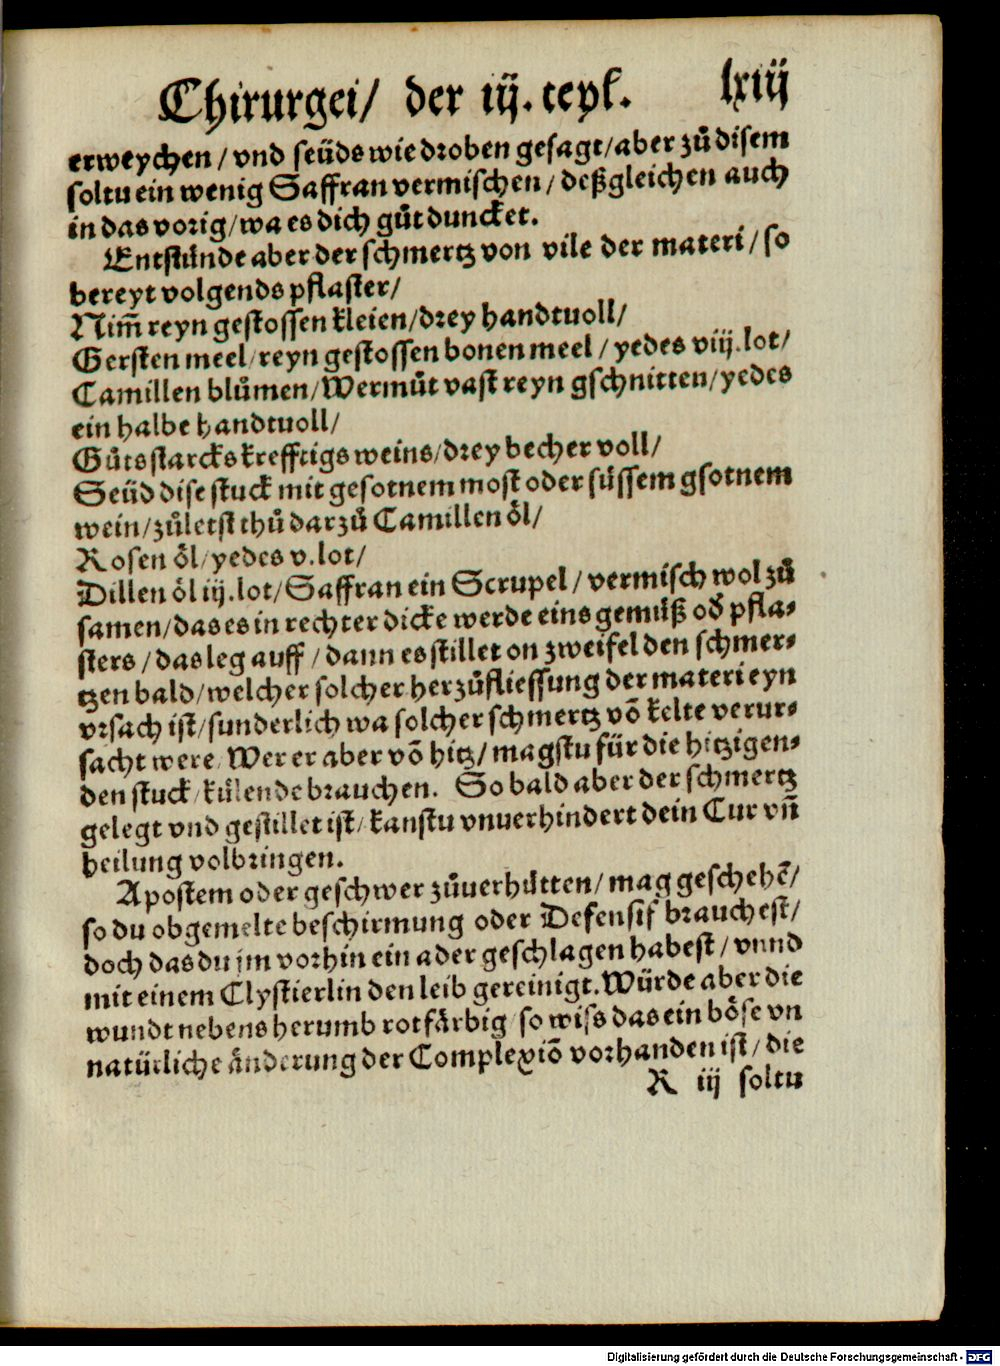 Chirurgei/ der iij. teyl. lxiij
erweychen/ vnd seüds wie droben gesagt/ aber zů disem
soltu ein wenig Saffran vermischen/ deßgleichen auch
in das vorig/ wa es dich gůt duncket.
Entstůnde aber der schmertz von vile der materi/ so
bereyt volgends pflaster/
Nim̃ reyn gestossen kleien/ drey handtuoll/
Gersten meel/ reyn gestossen bonen meel/ yedes viij. lot/
Camillen blůmen/ Wermůt vast reyn gschnitten/ yedes
ein halbe handtuoll/
Gůts starcks krefftigs weins/ drey becher voll/
Seüd dise stuck mit gesotnem most oder süssem gsotnem
wein/ zůletst thů darzů Camillen öl/
Rosen öl/ yedes v. lot/
Dillen öl iij. lot/ Saffran ein Scrupel/ vermisch wol zů
samen/ das es in rechter dicke werde eins gemüß od̄ pfla⸗
sters/ das leg auff/ dann es stillet on zweifel den schmer⸗
tzen bald/ welcher solcher herzůfliessung der materi eyn
vrsach ist/ sunderlich wa solcher schmertz võ kelte verur⸗
sacht were/ Wer er aber võ hitz/ magstu für die hitzigen⸗
den stuck/ külende brauchen. So bald aber der schmertz
gelegt vnd gestillet ist/ kanstu vnuerhindert dein Cur vñ
heilung volbringen.
Apostem oder geschwer zůuerhütten/ mag geschehẽ/
so du obgemelte beschirmung oder Defensif brauchest/
doch das du jm vorhin ein ader geschlagen habest/ vnnd
mit einem Clystierlin den leib gereinigt. Würde aber die
wundt nebens herumb rotfärbig/ so wiss das ein böse vn
natürliche änderung der Complexiõ vorhanden ist/ die
R iij soltu
Digitalisierung gefördert durch die Deutsche Forschungsgemeinschaft - DFG